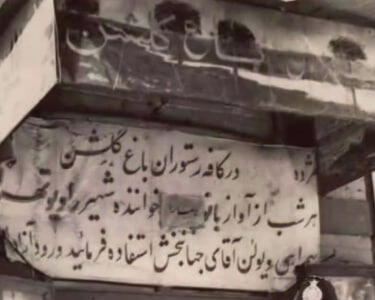 باغ گلشن
مژده در کافه رستوران باغ گلشن
هر شب از آواز بانو خواننده شهیر رادیو
همراهی ویولن آقای جهانبخش استفاده فرمائید ورود آزاد